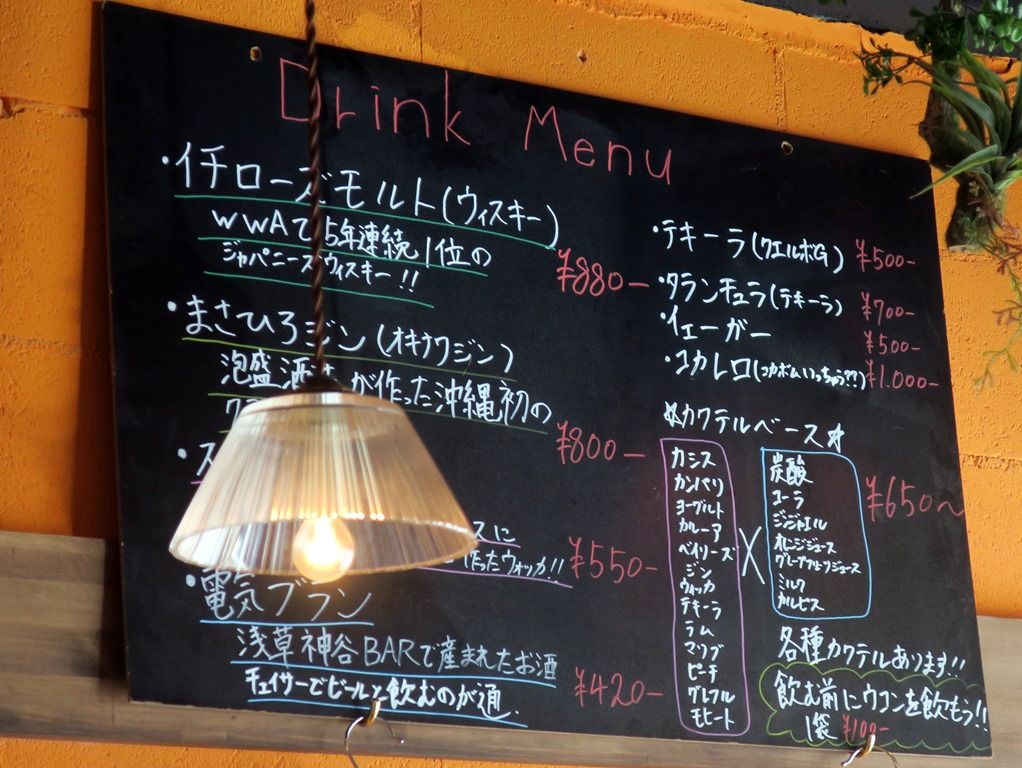 Drink Menu
・イチローズモルト(ウィスキー)
WWAで5年連続1位の
ジャパニーズウィスキー!!
¥880−
・まさひろジン(オキナワジン)
泡盛酒 が作った沖縄初の
¥800−
・ス
スに
作ったウォッカ!!
¥550−
・電気ブラン
浅草神谷BARで産まれたお酒
チェイサーでビールを飲むのが通.
¥420−
・テキーラ(クエルボG) ¥500−
・タランチュラ(テキーラ) ¥700−
・イェーガー ¥500−
・コカレロ(コカボムいっちゃう??) ¥1.000−
*カクテルベース*
カシス
カンパリ
ヨーグルト
カルーア
ベイリーズ
ジン
ウォッカ
テキーラ
ラム
マリブ
ピーチ
グレフル
モヒート
×
炭酸
コーラ
ジンジャエル
オレンジジュース
グレープフルーツジュース
ミルク
カルピス
¥650〜
各種カクテルあります!!
飲む前にウコンを飲もう!!
1袋 ¥100−